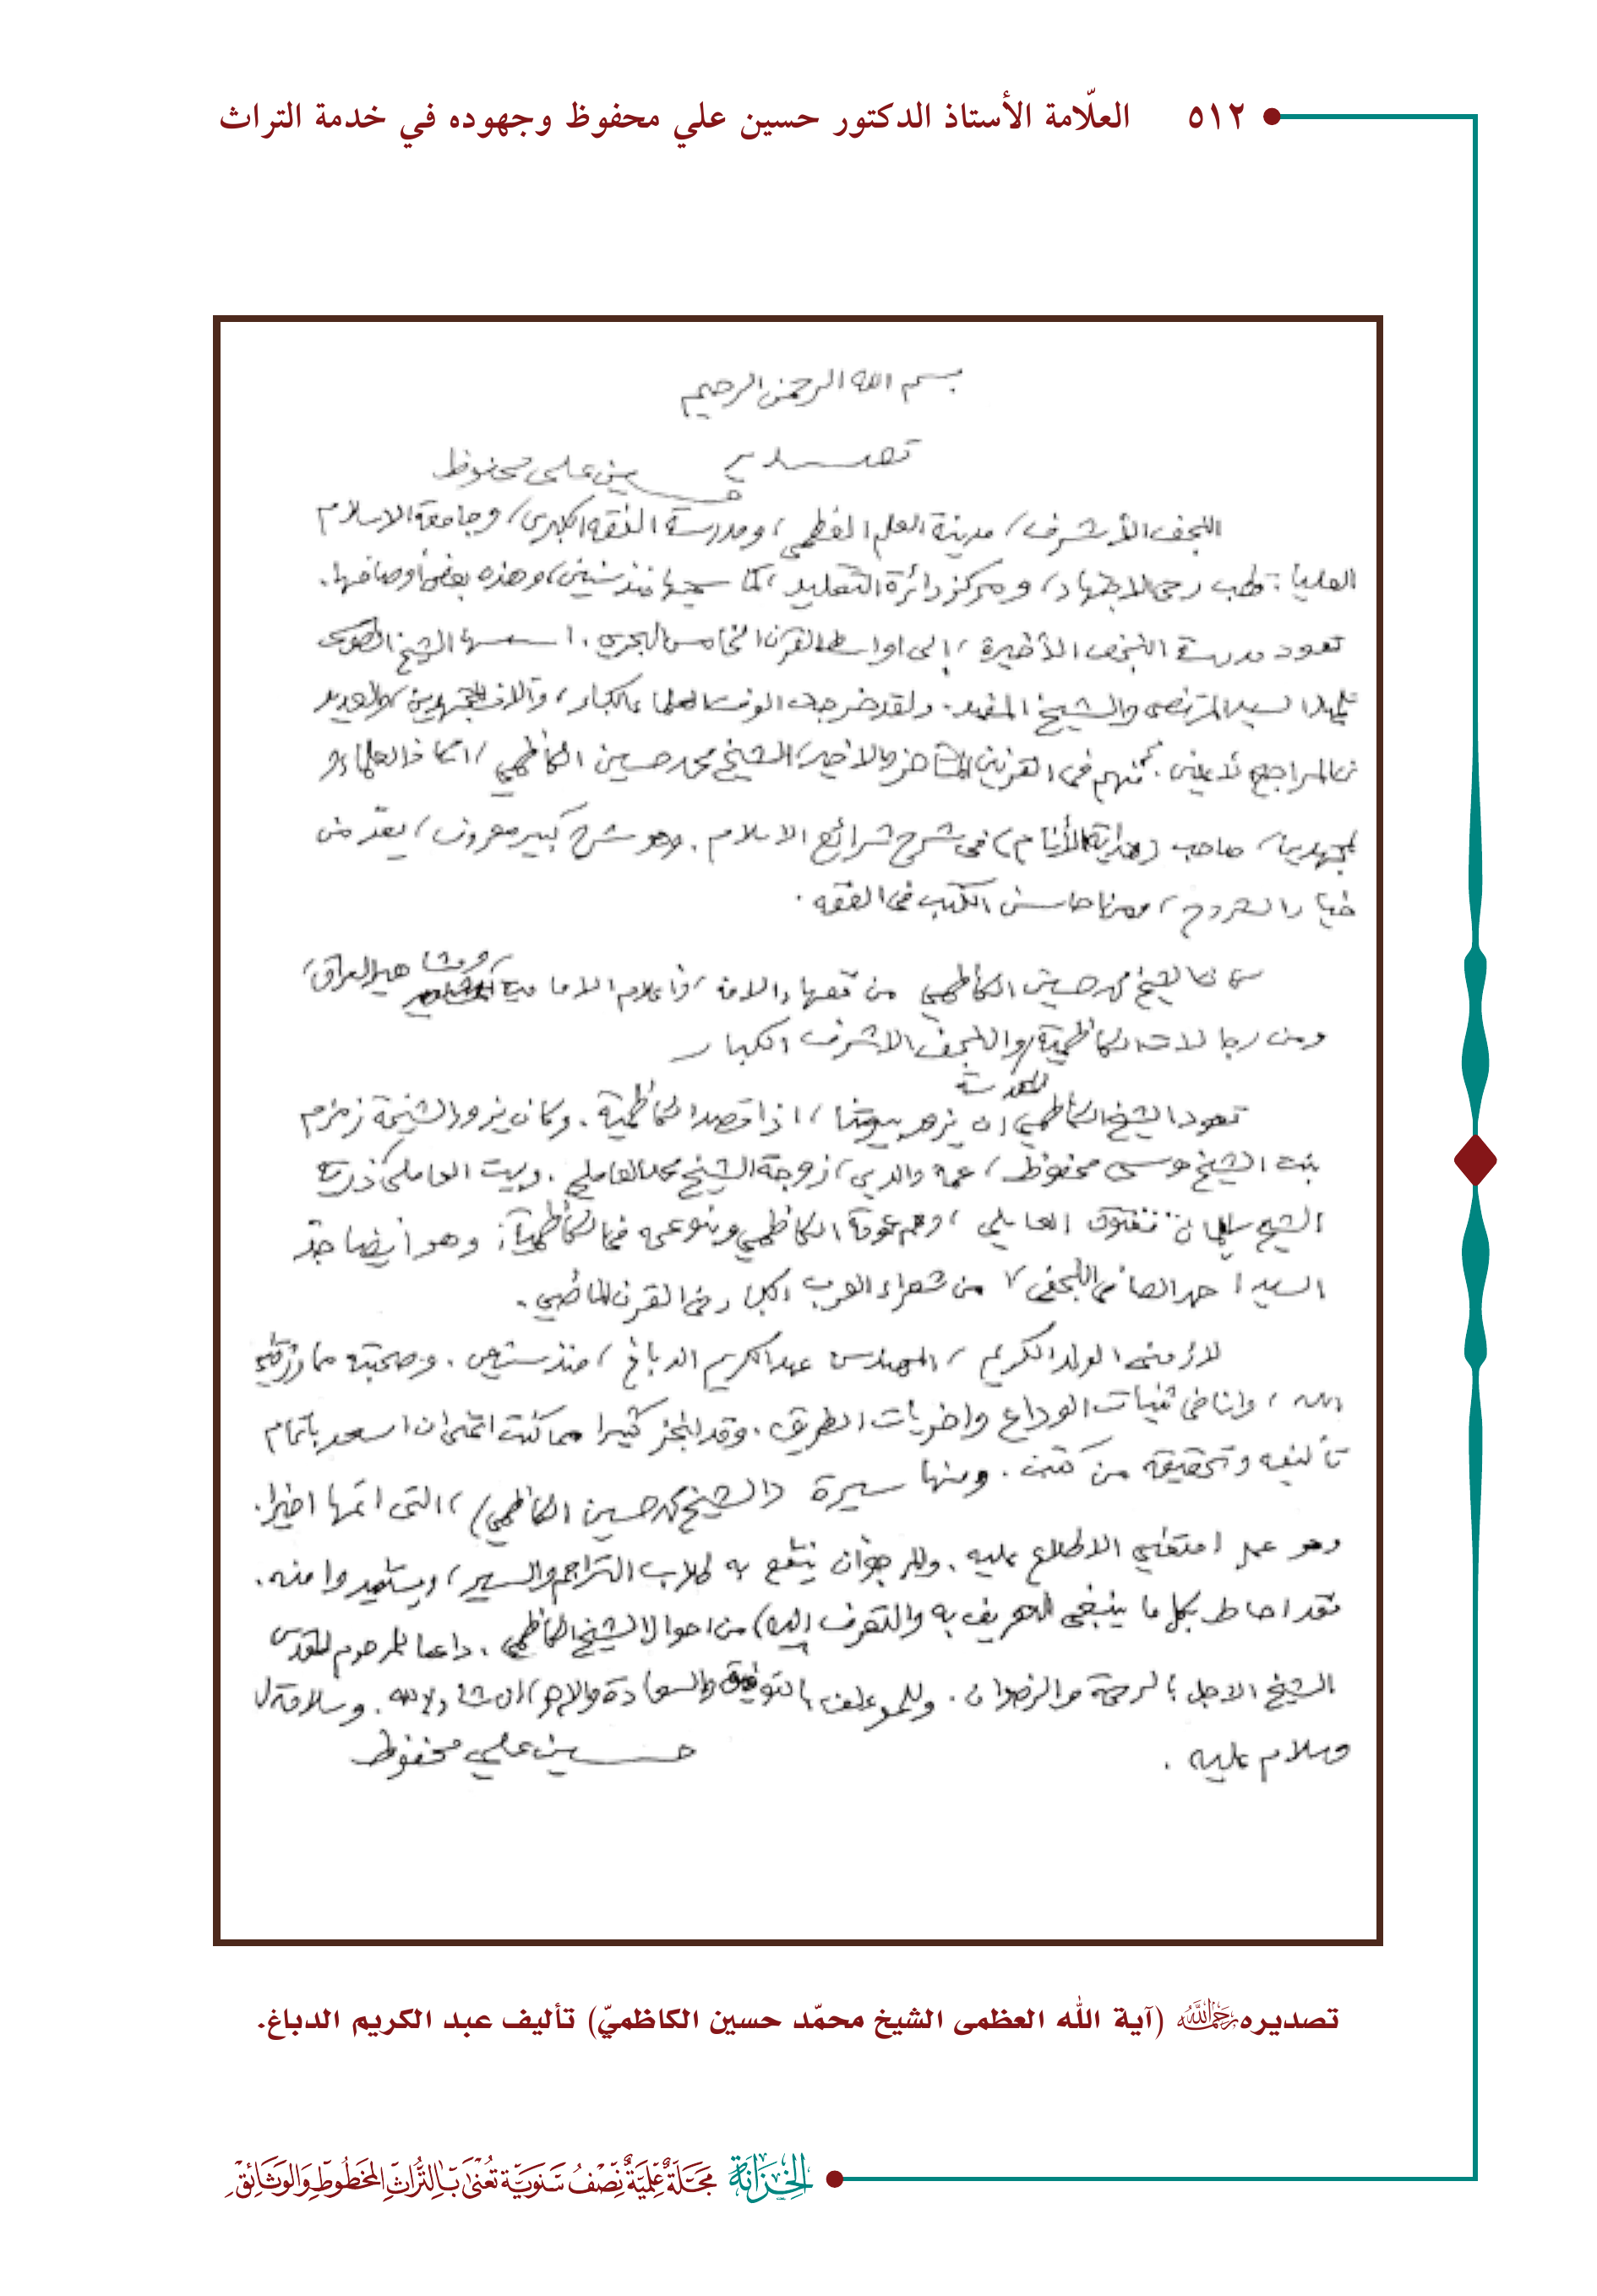 ٥١٢ العلّامة الأستاذ الدكتور حسين علي محفوظ وجهوده في خدمة التراث
بسم الله الرحمن الرحيم
تصدير
حسين علي محفوظ
النجف الأشرف، مدينة العلم العظمى، ومدرسة الفقه الكبرى، وجامعة الاسلام
العليا: قطب رحى الاجتهاد، ومركز دائرة التقليد، كما سميتها منذ سنين، وهذه بعض أوصافها.
تعود مدرسة النجف الأخيرة، إلى اواسط القرن الخامس الهجري. اسسها الشيخ الطوسي
تلميذ السيد المرتضى والشيخ المفيد. ولقد خرجت الوف العلماء الكبار، وآلاف المجتهدين، والعديد
من المراجع منهم في القرنين والاخير، الشيخ محمد حسين الكاظمي، استاذ العلماء و
المجتهدين، صاحب (هداية الأنام) في شرح شرائع الاسلام. وهو شرح كبير معروف، يعدّ من
خيار الشروح، ومن احاسن الكتب في الفقه.
كان الشيخ محمد حسين الكاظمي من فقهاء الامة، واعلام الامامية، ومشاهير العراق،
ومن رجالات الكاظمية والنجف الاشرف الكبار
تعود الشيخ الكاظمي ان يزور بيوتنا، اذا قصد الكاظمية. وكان يزور الشيخة زمزم
بنت الشيخ موسى محفوظ، عمة والدي، زوجة الشيخ محمد العاملي. وبيت العاملي ذرية
الشيخ سليمان العاملي، وهم الكاظمي وبنو عمه في الكاظمية. وهو أيضا جدّ
السيد أحمد الصافي النجفي، من شعراء العرب الكبار في القرن الماضي.
لازمني الولد الكريم، المهندس عبد الكريم الدباغ، منذ سنين. وصحبته مما رزقنيه
الله، وانا في ثنيات الوداع واخريات الطريق. وقد انجز كثيرا مما كنت اتمنى ان اسعد باتمام
تأليفه وتحقيقه من كتب. ومنها سيرة (الشيخ محمد حسين الكاظمي)، التي اتمها اخيرا.
وهو عمل الاطلاع عليه. والمرجو أن ينتفع به طلاب التراجم والسير، ويستفيدوا منه.
فقد احاط بكل ما ينبغي التعريف به والتعرف إليه من احوال الشيخ الكاظمي. داعيا للمرحوم المقدس
الشيخ الاجل بالرحمة والرضوان. وللمؤلف بالتوفيق والسعادة والاجر، ان شاء الله. وسلامة له
وسلام عليه.
حسين علي محفوظ
تصديره رحمه الله (آية الله العظمى الشيخ محمّد حسين الكاظميّ) تأليف عبد الكريم الدباغ.
الخزانة مجلة علمية نصف سنوية تعنى بالتراث المخطوط والوثائق